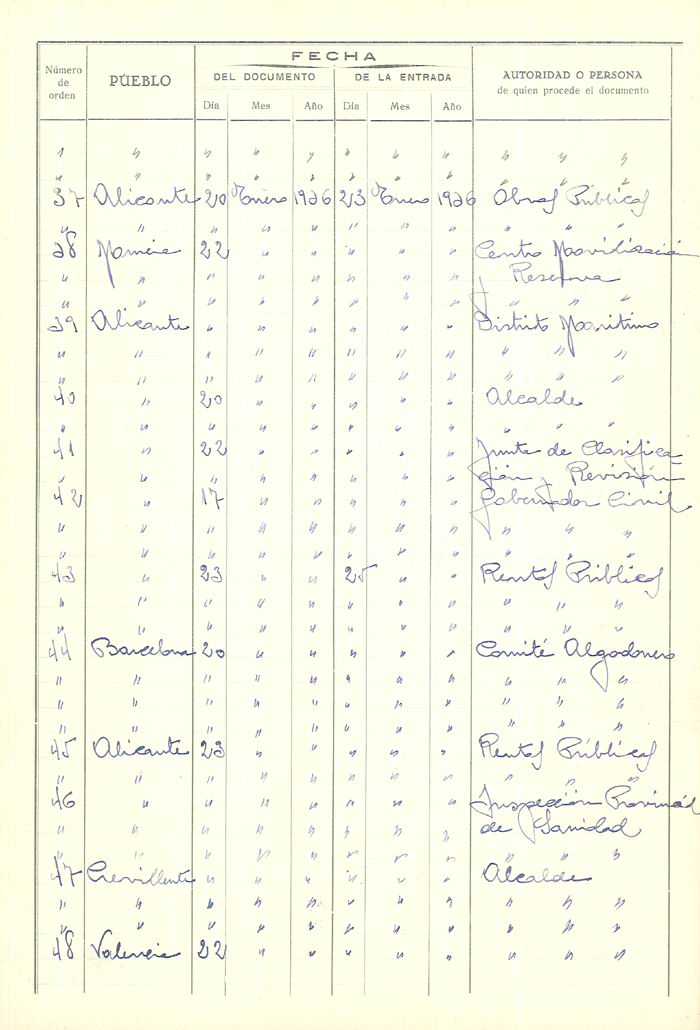 FECHA
Número de orden PUEBLO DEL DOCUMENTO DE LA ENTRADA AUTORIDAD O PERSONA de quien procede el documento
Día Mes Año Día Mes Año
" " " " " " " " " " "
" " " " " " " " " " "
37 Alicante 20 Enero 1926 23 Enero 1926 Obras Públicas
" " " " " " " " " " "
38 22 " " " " " Centro Movilización
" " " " " " " " Reserva
" " " " " " " " " " "
39 Alicante " " " " " " Distrito Marítimo
" " " " " " " " " " "
" " " " " " " " " " "
40 " 20 " " " " " Alcalde
" " " " " " " " " " "
41 " 22 " " " " " Junta de Clasifica
" " " " " " " " ción y Revisión
42 " 17 " " " " " Gobernador Civil
" " " " " " " " " " "
" " " " " " " " " " "
43 " 23 " " 25 " " Rentas Públicas
" " " " " " " " " " "
" " " " " " " " " " "
44 Barcelona 20 " " " " " Comité Algodonero
" " " " " " " " " " "
" " " " " " " " " " "
" " " " " " " " " " "
45 Alicante 23 " " " " " Rentas Públicas
" " " " " " " " " " "
46 " " " " " " " Inspección Provincial
" " " " " " " " de Sanidad
" " " " " " " " " " "
47 Crevillente " " " " " " Alcalde
" " " " " " " " " " "
" " " " " " " " " " "
48 Valencia 22 " " " " " " " "